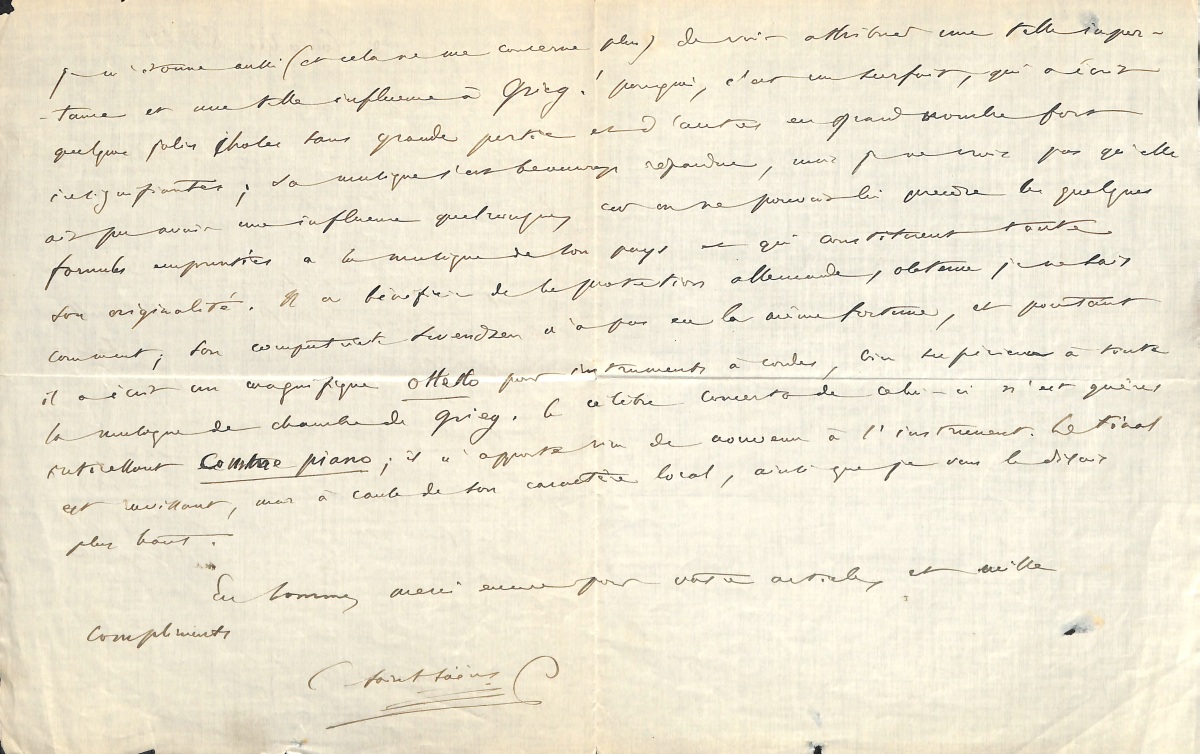 Je m'étonne aussi (et cela ne me concerne plus) de voir attribuer une telle impor-
-tance et une telle influence à Grieg. pourquoi, c'est un surfait, qui a écrit
quelques jolies choses sans grande portée et d'autres en grand nombre fort
insignifiantes ; sa musique s'est beaucoup répandue, mais je ne vois pas qu'elle
ait pu avoir une influence quelconque, car on ne pouvait lui prendre les quelques
formules empruntées à la musique de son pays et qui constituent toute
son originalité. Il a bénéficié de la protection allemande, obtenue je ne sais
comment ; son compatriote Svendsen n'a pas eu la même fortune, et pourtant
il a écrit un magnifique ottetto pour instruments à cordes, bien supérieur à toute
la musique de chambre de Grieg. Le célèbre concerto de celui-ci n'est guères
intéressant comme piano ; il n'apporte rien de nouveau à l'instrument. Le final
est ravissant, mais à cause de son caractère local, ainsi que je vous le disais
plus haut.
En somme, merci encore pour votre article, et mille
compliments
Saint-Saëns